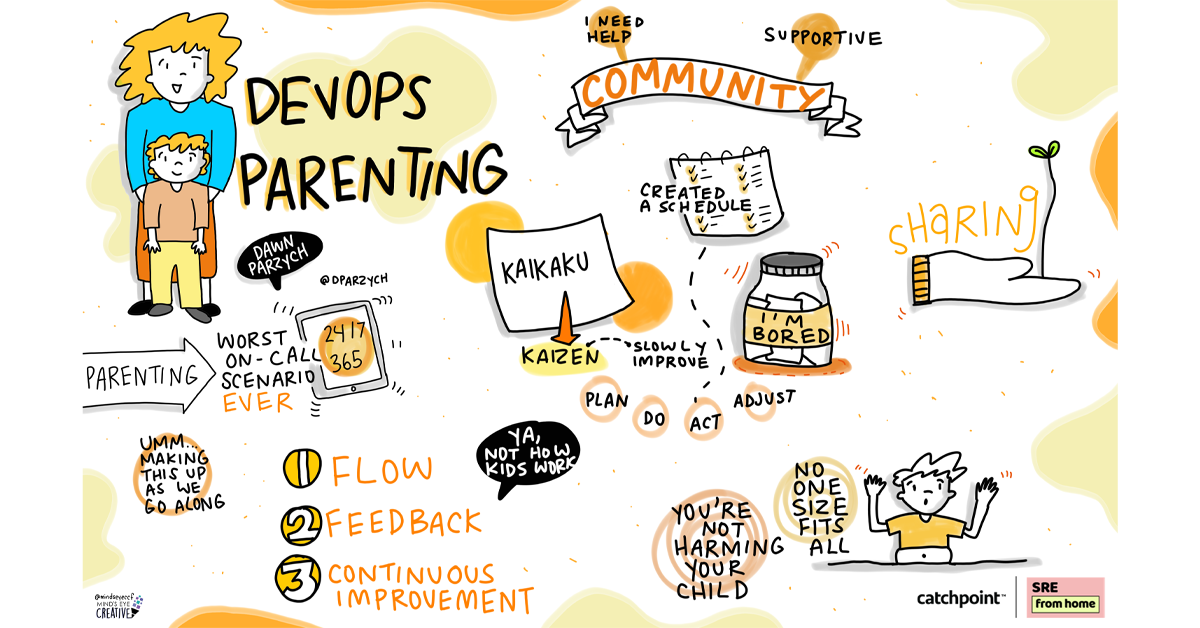 DEVOPS
PARENTING
DAWN
PARZYCH
@DPARZYCH
PARENTING
WORST
ON-CALL
SCENARIO
EVER
24|7
365
UMM...
MAKING
THIS UP
AS WE
GO ALONG
1 FLOW
2 FEEDBACK
3 CONTINUOUS
IMPROVEMENT
I NEED
HELP
SUPPORTIVE
COMMUNITY
CREATED
A SCHEDULE
KAIKAKU
KAIZEN
SLOWLY
IMPROVE
I'M
BORED
PLAN
DO
ACT
ADJUST
YA,
NOT HOW
KIDS WORK
SHARING
YOU'RE
NOT
HARMING
YOUR
CHILD
NO
ONE
SIZE
FITS
ALL
@mindseyeccf
MIND'S EYE
CREATIVE
catchpoint™
SRE
from home